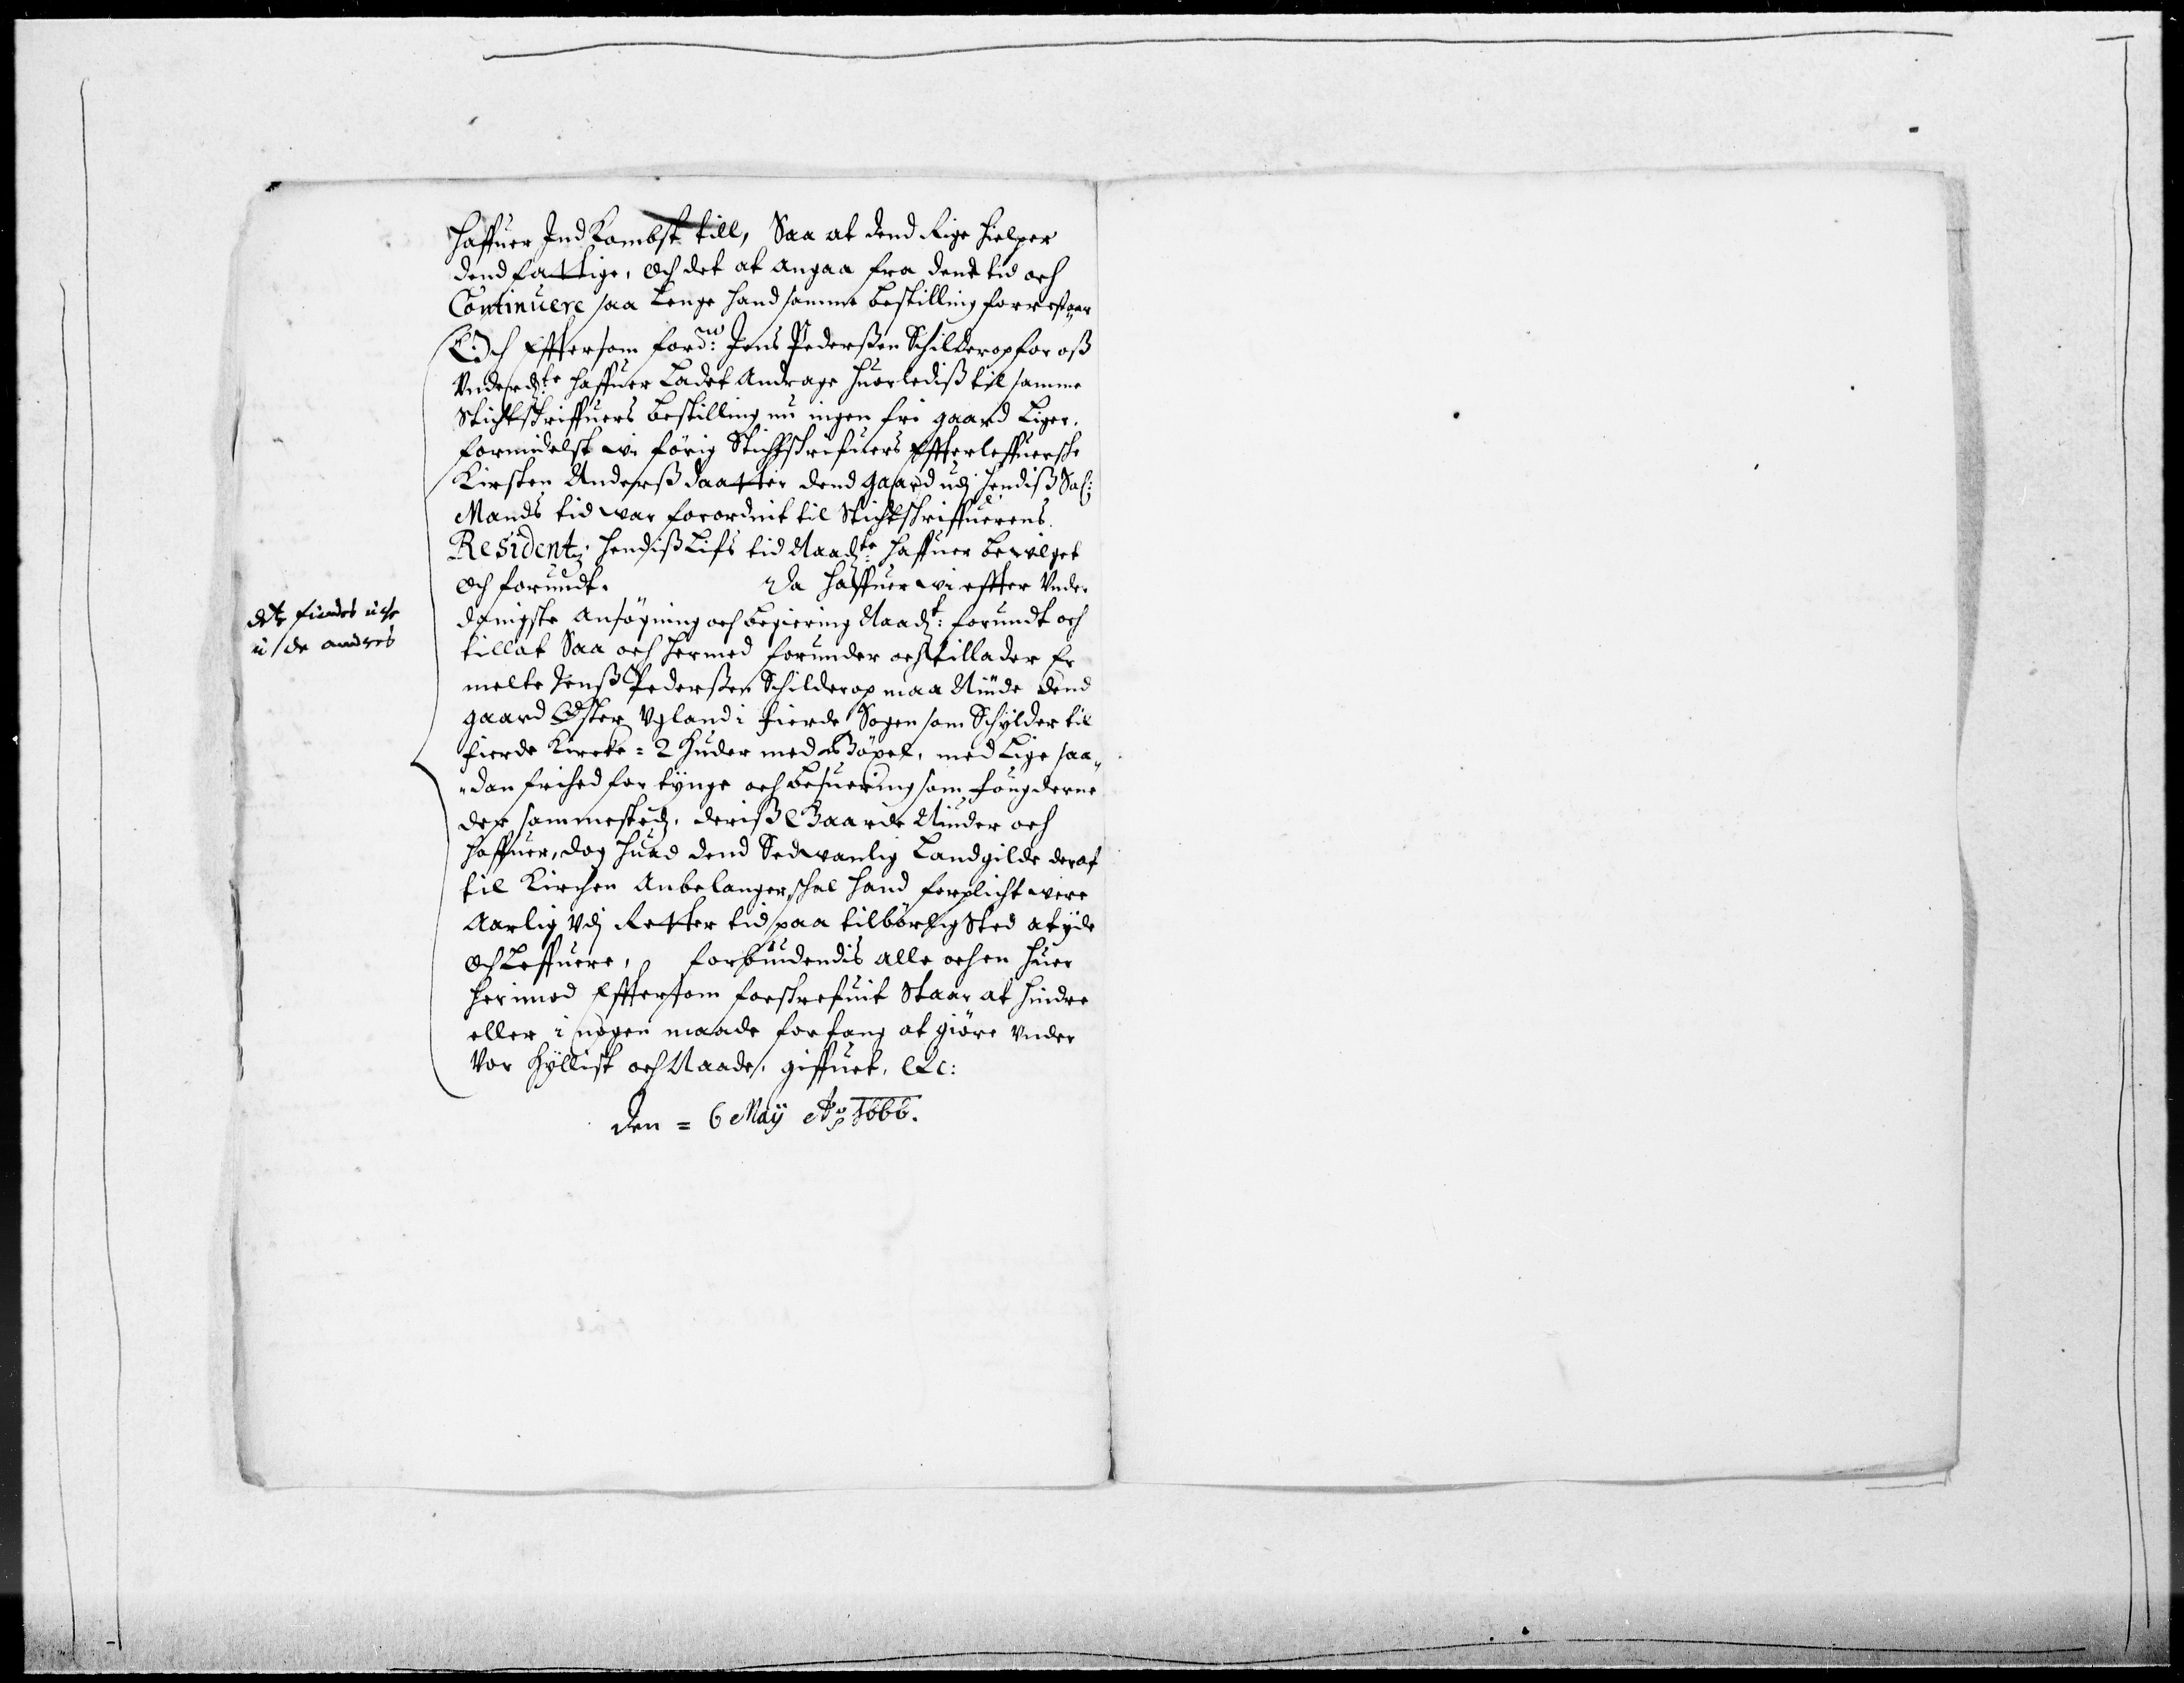 haffuer Ind Kombst till, Saa at dend Rige hielper
dend fattige, och det at angaa fra dend tid och
Continuere saa Lenge hand samme bestilling forrestaar
Och Efftersom fordn: Jens Pederßen Schilderop for oß
Underdte haffuer Ladet Andrage huorlediß til samme
Stichtskriffuers bestilling nu ingen fri gaard Liger,
formidelst wi forig Stichtskrifuers Effterleffuersche
Kirsten Anderß daatter dend gaard udj hendiß Sal:
Mands tid war forordnit til Stichtskriffuerens
Residentz hendiß Lifs tid Naadte haffuer bewilget
och forundt. Da haffuer wi effter Under
dynigste Ansøgning och begiering Naadt: forundt och
tillat Saa och hermed forunder och tillader Er
melte Jenß Pederßen Schilderop maa Niude dend
gaard Øster Ugland i fierde Sogen som Schylder til
fierde Kircke = 2 huder med Bøxel, med Lige saa
dan frihed for tynge och besuering som fougderne
der sammestedz, deriß Gaarde Niuder och
haffuer, dog huad dend Sedwanlig Landgilde deraf
til Kirchen Anbelanger, schal hand forplicht were
Aarlig Udj Retter tid paa tilbørlig Sted at yde
och Leffuere, forbiudendis alle och en huer
herimod Efftersom forskrefuit Staar at hindre
eller i nogen maade forfang at giøre Under
Vor hyllist och Naade, giffuet, etc:
Den = 6 Maij Ao 1666.
dette findes icke
i de andres